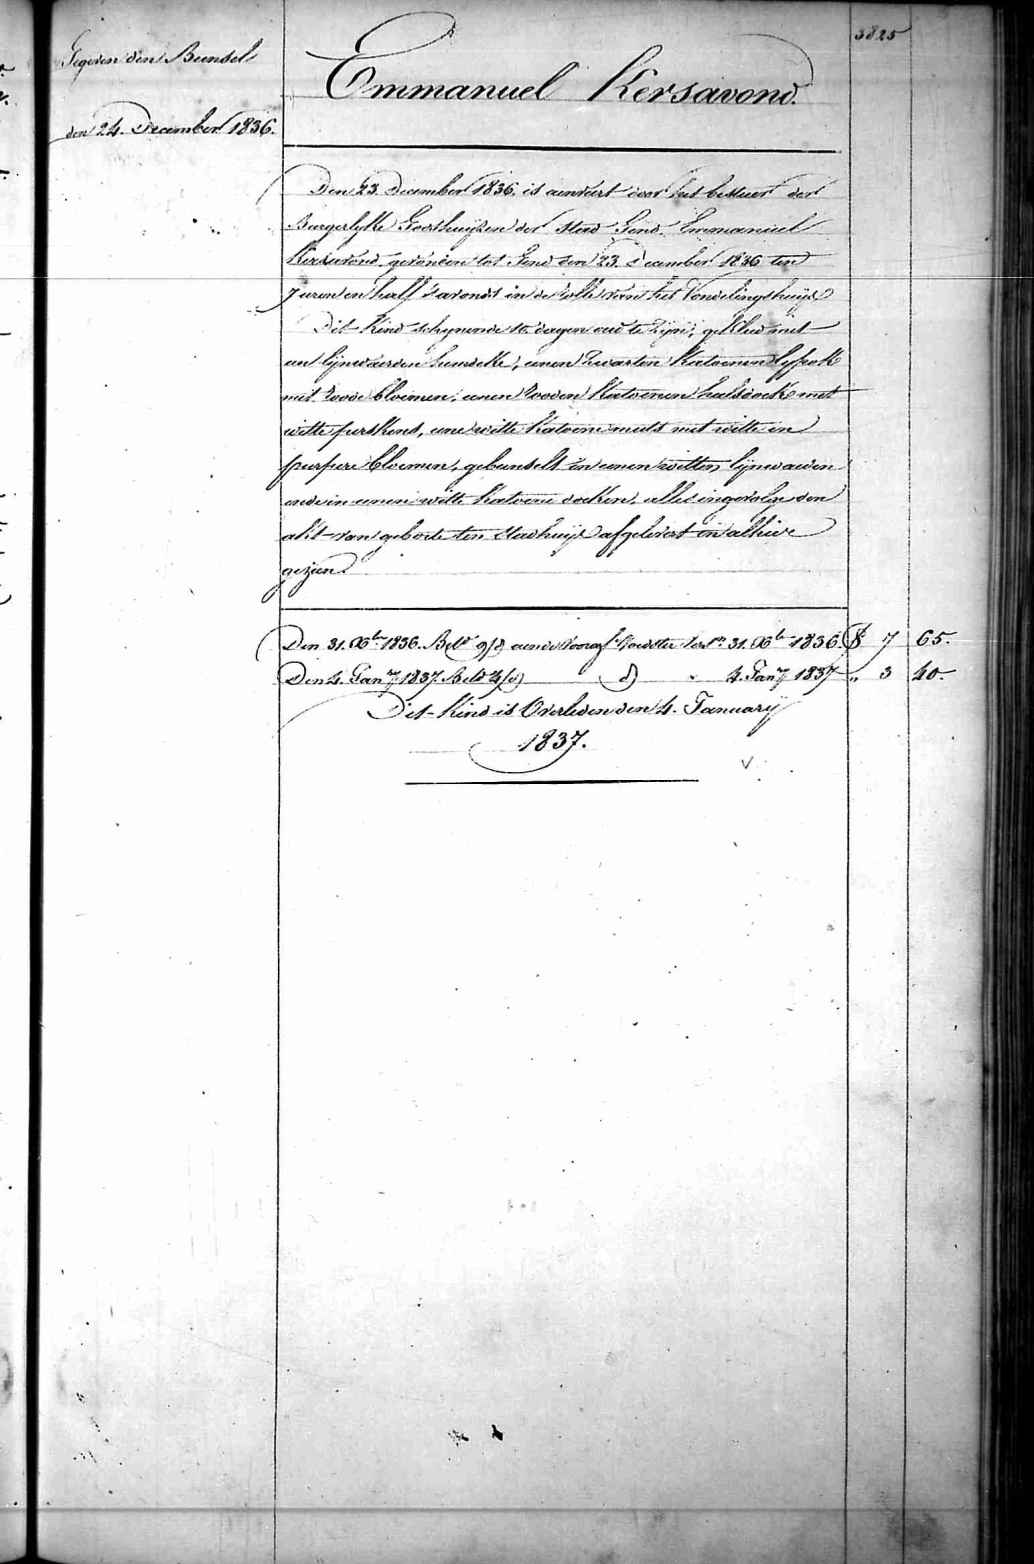 3825
Gegeven den Bundsel
den 24. December 1836.
Emmanuel Kersavond.
Den 23. December 1836. is aenveert door het bestier der
Burgerlyke Godshuijzen der Stad Gend. Emmanuel
Kersavond, gevonden tot Gend den 23. December 1836 ten
7 uren en half 's avonds in de rolle van het Vondelingshuijs
Dit kind schynende 10 dagen oud te zijn, gekleed met
een lijnwaerden hemdeke, eenen zwarten katoenen lyfrok
met roode bloemen, eenen rooden katoenen halsdoek met
witte perskens, eene witte katoene muts met witte en
purpere bloemen, gebunselt in eenen witten lijnwaeden
ende in eenen witte katoene doeken, alles ingevolge den
akt van geborte ten stadhuijse afgelevert en alhier
gezien.
Den 31. Xbr 1836. Betd 9/8 aende Voorgs Voedster ver 31. Xbr 1836. f 7 65.
Den 4. Jany 1837. betd 4/ d° " 4. Jany 1837 " 3 40.
Dit Kind is Overleden den 4. January
1837.